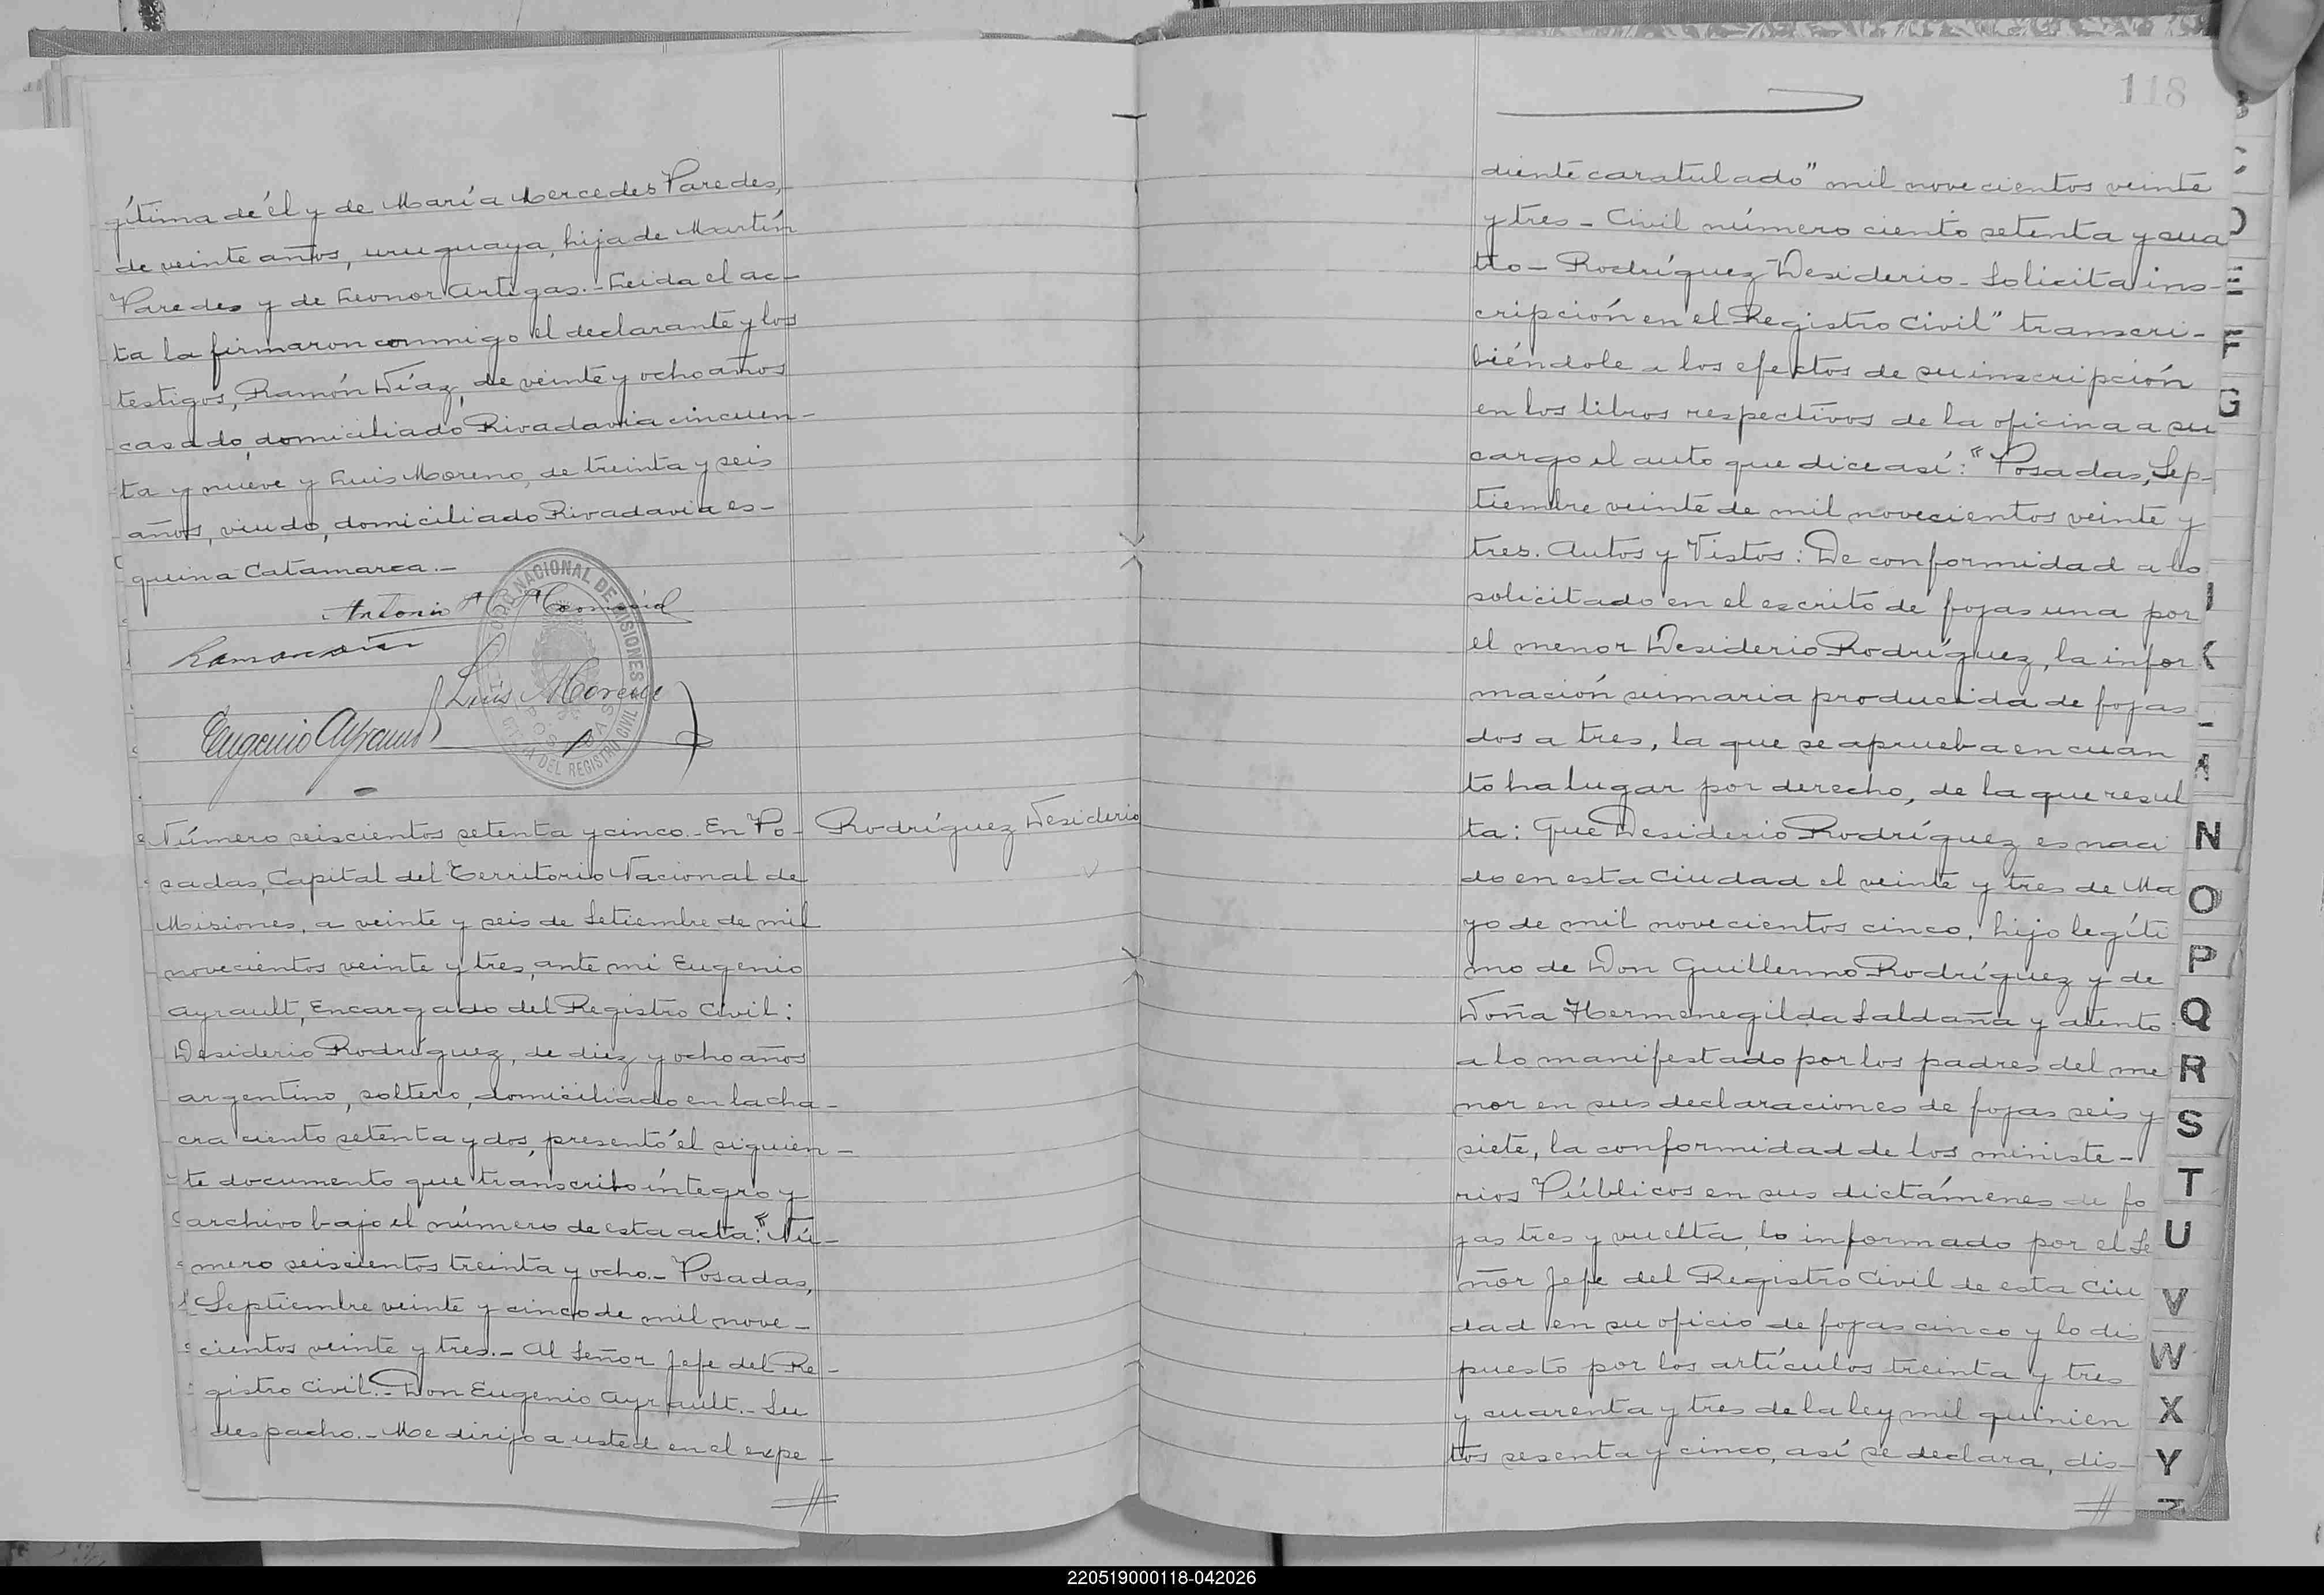 gítima de él y de María Mercedes Paredes,
de veinte años, uruguaya, hija de Martín
Paredes y de Leonor Artigas.- Leida el ac-
ta la firmaron conmigo el declarante y los
testigos, Ramón Díaz, de veinte y ocho años
casado, domiciliado Rivadavia cincuen-
ta y nueve y Luis Moreno, de treinta y seis
años, viudo, domiciliado Rivadavia es-
quina Catamarca.-
Antonio
Luis Moreno
Eugenio Ayrault
Número seiscientos setenta y cinco.- En Po-
Rodríguez Desiderio
sadas, Capital del Territorio Nacional de
Misiones, a veinte y seis de Setiembre de mil
novecientos veinte y tres, ante mi Eugenio
Ayrault, Encargado del Registro Civil:
Desiderio Rodríguez, de diez y ocho años
argentino, soltero, domiciliado en la cha-
cra ciento setenta y dos, presentó el siguien-
te documento que transcribo íntegro y
archivo bajo el número de esta acta: "Nú-
mero seiscientos treinta y ocho.- Posadas,
Septiembre veinte y cinco de mil nove-
cientos veinte y tres.- Al Señor Jefe del Re-
gistro Civil.- Don Eugenio Ayrault.- Su
despacho.- Me dirijo a usted en el expe-
118
diente caratulado "mil novecientos veinte
y tres - Civil número ciento setenta y cua
tro - Rodríguez Desiderio - Solicita ins-
cripción en el Registro Civil" transcri-
biéndole a los efectos de su inscripción
en los libros respectivos de la oficina a su
cargo el auto que dice así: "Posadas, Sep-
tiembre veinte de mil novecientos veinte y
tres. Autos y Vistos: De conformidad a lo
solicitado en el escrito de fojas una por
el menor Desiderio Rodríguez, la infor
mación sumaria producida de fojas
dos a tres, la que se aprueba en cuan
to ha lugar por derecho, de la que resul
ta: Que Desiderio Rodríguez es naci
do en esta Ciudad el veinte y tres de Ma
yo de mil novecientos cinco, hijo legíti
mo de Don Guillermo Rodríguez y de
Doña Hermenegilda Saldaña y atento
a lo manifestado por los padres del me
nor en sus declaraciones de fojas seis y
siete, la conformidad de los ministe-
rios Públicos en sus dictámenes de fo
jas tres y vuelta, lo informado por el Se
ñor Jefe del Registro Civil de esta Ciu
dad en su oficio de fojas cinco y lo dis
puesto por los artículos treinta y tres
y cuarenta y tres de la ley mil quinien
tos sesenta y cinco, así se declara, dis-
E
F
G
N
O
P
Q
R
S
T
U
V
W
X
Y
220519000118-042026